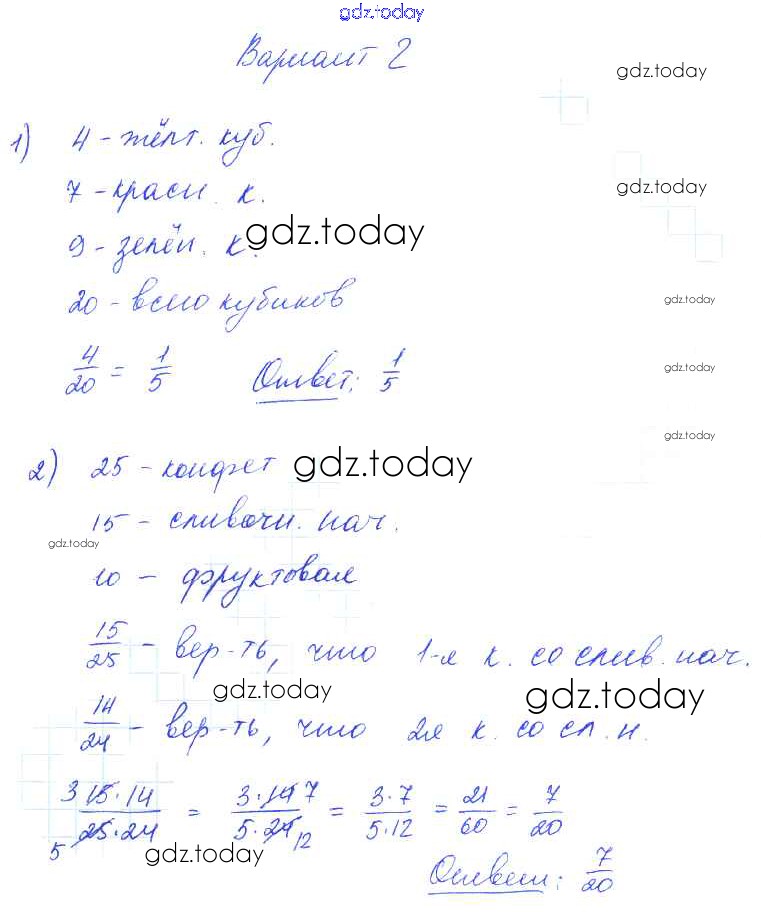 gdz.today
Вариант 2
gdz.today
1) 4 - жёлт. куб.
7 - красн. к. gdz.today
9 - зелён. к. gdz.today
20 - всего кубиков gdz.today
4/20 = 1/5 Ответ: 1/5 gdz.today
gdz.today
2) 25 - конфет gdz.today
15 - сливочн. нач.
gdz.today
10 - фруктовая
15/25 - вер-ть, что 1-я к. со слив. нач.
gdz.today gdz.today
14/24 - вер-ть, что 2я к. со сл. н.
3 15·14 / 5 25·24 = 3·14 7 / 5·24 12 = 3·7/5·12 = 21/60 = 7/20
gdz.today
Ответ: 7/20